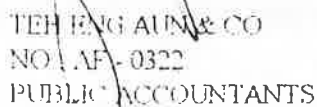 TEH ENG AUN & CO
NO : AF - 0322
PUBLIC ACCOUNTANTS